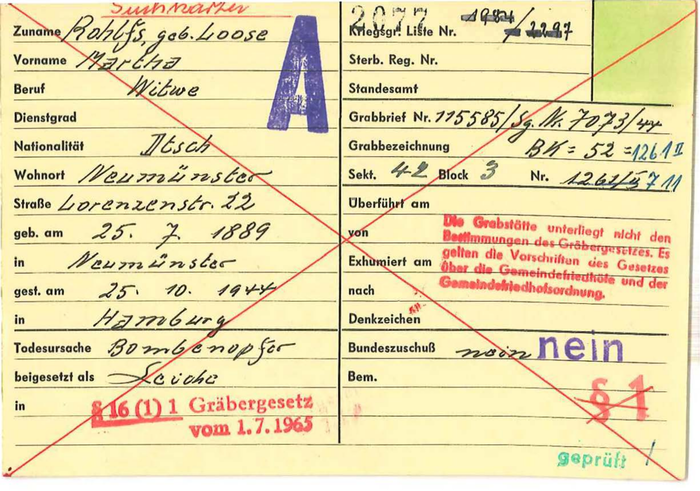 Suchkartei
Zuname Rohlfs geb. Loose
Vorname Martha
Beruf Witwe
Dienstgrad
Nationalität Dtsch
Wohnort Neumünster
Straße Lorenzenstr. 22
geb. am 25. 7. 1889
in Neumünster
gest. am 25. 10. 1944
in Hamburg
Todesursache Bombenopfer
beigesetzt als Leiche
in
§ 16 (1) 1 Gräbergesetz
vom 1.7.1965
A
2077
Kriegsgr. Liste Nr. / 2297
Sterb. Reg. Nr.
Standesamt
Grabbrief Nr. 115585/Sg. Nr. 7073/44
Grabbezeichnung BK = 52 = 1261 II
Sekt. 42 Block 3 Nr. 711
Überführt am
von
Exhumiert am
nach
Die Grabstätte unterliegt nicht den
Bestimmungen des Gräbergesetzes. Es
gelten die Vorschriften des Gesetzes
über die Gemeindefriedhöfe und der
Gemeindefriedhofsordnung.
Denkzeichen
Bundeszuschuß nein nein
Bem.
§ 1
geprüft